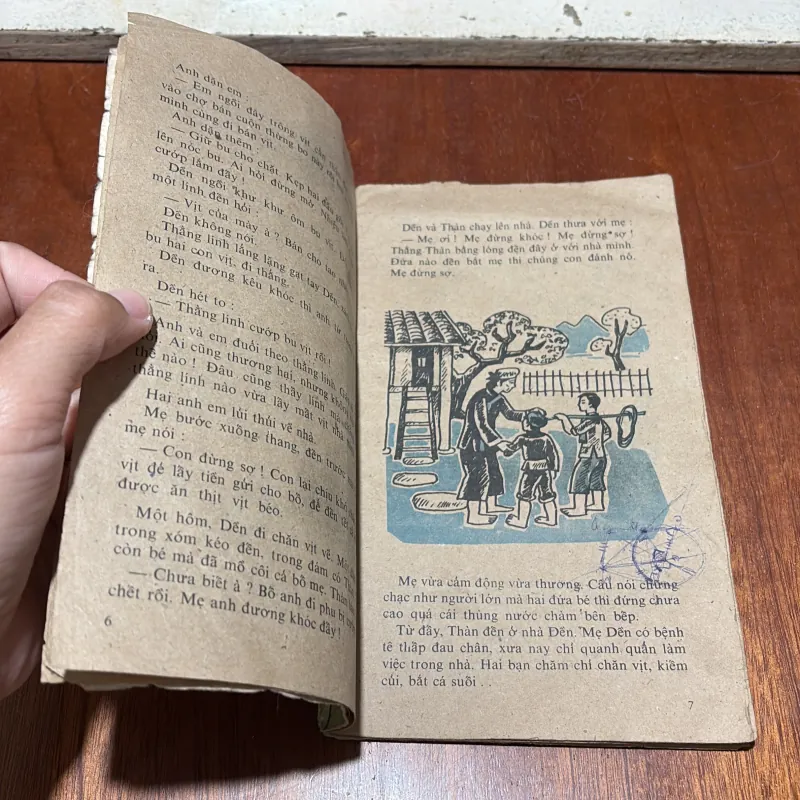 Anh dặn em :
— Em ngồi đây trông vịt cho
vào chợ bán cuộn thừng bò này, rồi
mình cùng đi bán vịt.
Anh dặn thêm :
— Giữ bu cho chặt. Kẹp hai đầu
lên nóc bu. Ai hỏi đừng mở.
cướp lắm đấy !
Dến ngồi khư khư ôm bu vịt.
một lính đến hỏi :
— Vịt của mày à ? Bán cho tao
Dến không nói.
Thằng lính lẳng lặng gạt tay Dến,
bu hai con vịt, đi thẳng.
Dến đương kêu khóc thì anh từ
ra.
Dến hét to :
— Thằng lính cướp bu vịt rồi !
Anh và em đuổi theo thằng lính.
nơi. Ai cũng thương hại, nhưng không
thế nào ! Đâu cũng thấy lính
thằng lính nào vừa lấy mất vịt nhà
Hai anh em lủi thủi về nhà.
Mẹ bước xuống thang, đến trước
mẹ nói :
— Con đừng sợ ! Con lại chịu khó
vịt để lấy tiền gửi cho bố, để đến tết
được ăn thịt vịt béo.
Một hôm, Dến đi chăn vịt về.
trong xóm kéo đến, trong đám có
còn bé mà đã mồ côi cả bố mẹ. Thàn
— Chưa biết à ? Bố anh đi phu bị
chết rồi. Mẹ anh đương khóc đấy !
6
Dến và Thàn chạy lên nhà. Dến thưa với mẹ :
— Mẹ ơi ! Mẹ đừng khóc ! Mẹ đừng sợ !
Thằng Thàn bằng lòng đến đây ở với nhà mình.
Đứa nào đến bắt mẹ thì chúng con đánh nó.
Mẹ đừng sợ.
Mẹ vừa cảm động vừa thương. Câu nói chững
chạc như người lớn mà hai đứa bé thì đứng chưa
cao quá cái thùng nước chàm bên bếp.
Từ đấy, Thàn đến ở nhà Dến. Mẹ Dến có bệnh
tê thấp đau chân, xưa nay chỉ quanh quẩn làm
việc trong nhà. Hai bạn chăm chỉ chăn vịt, kiếm
củi, bắt cá suối . .
7